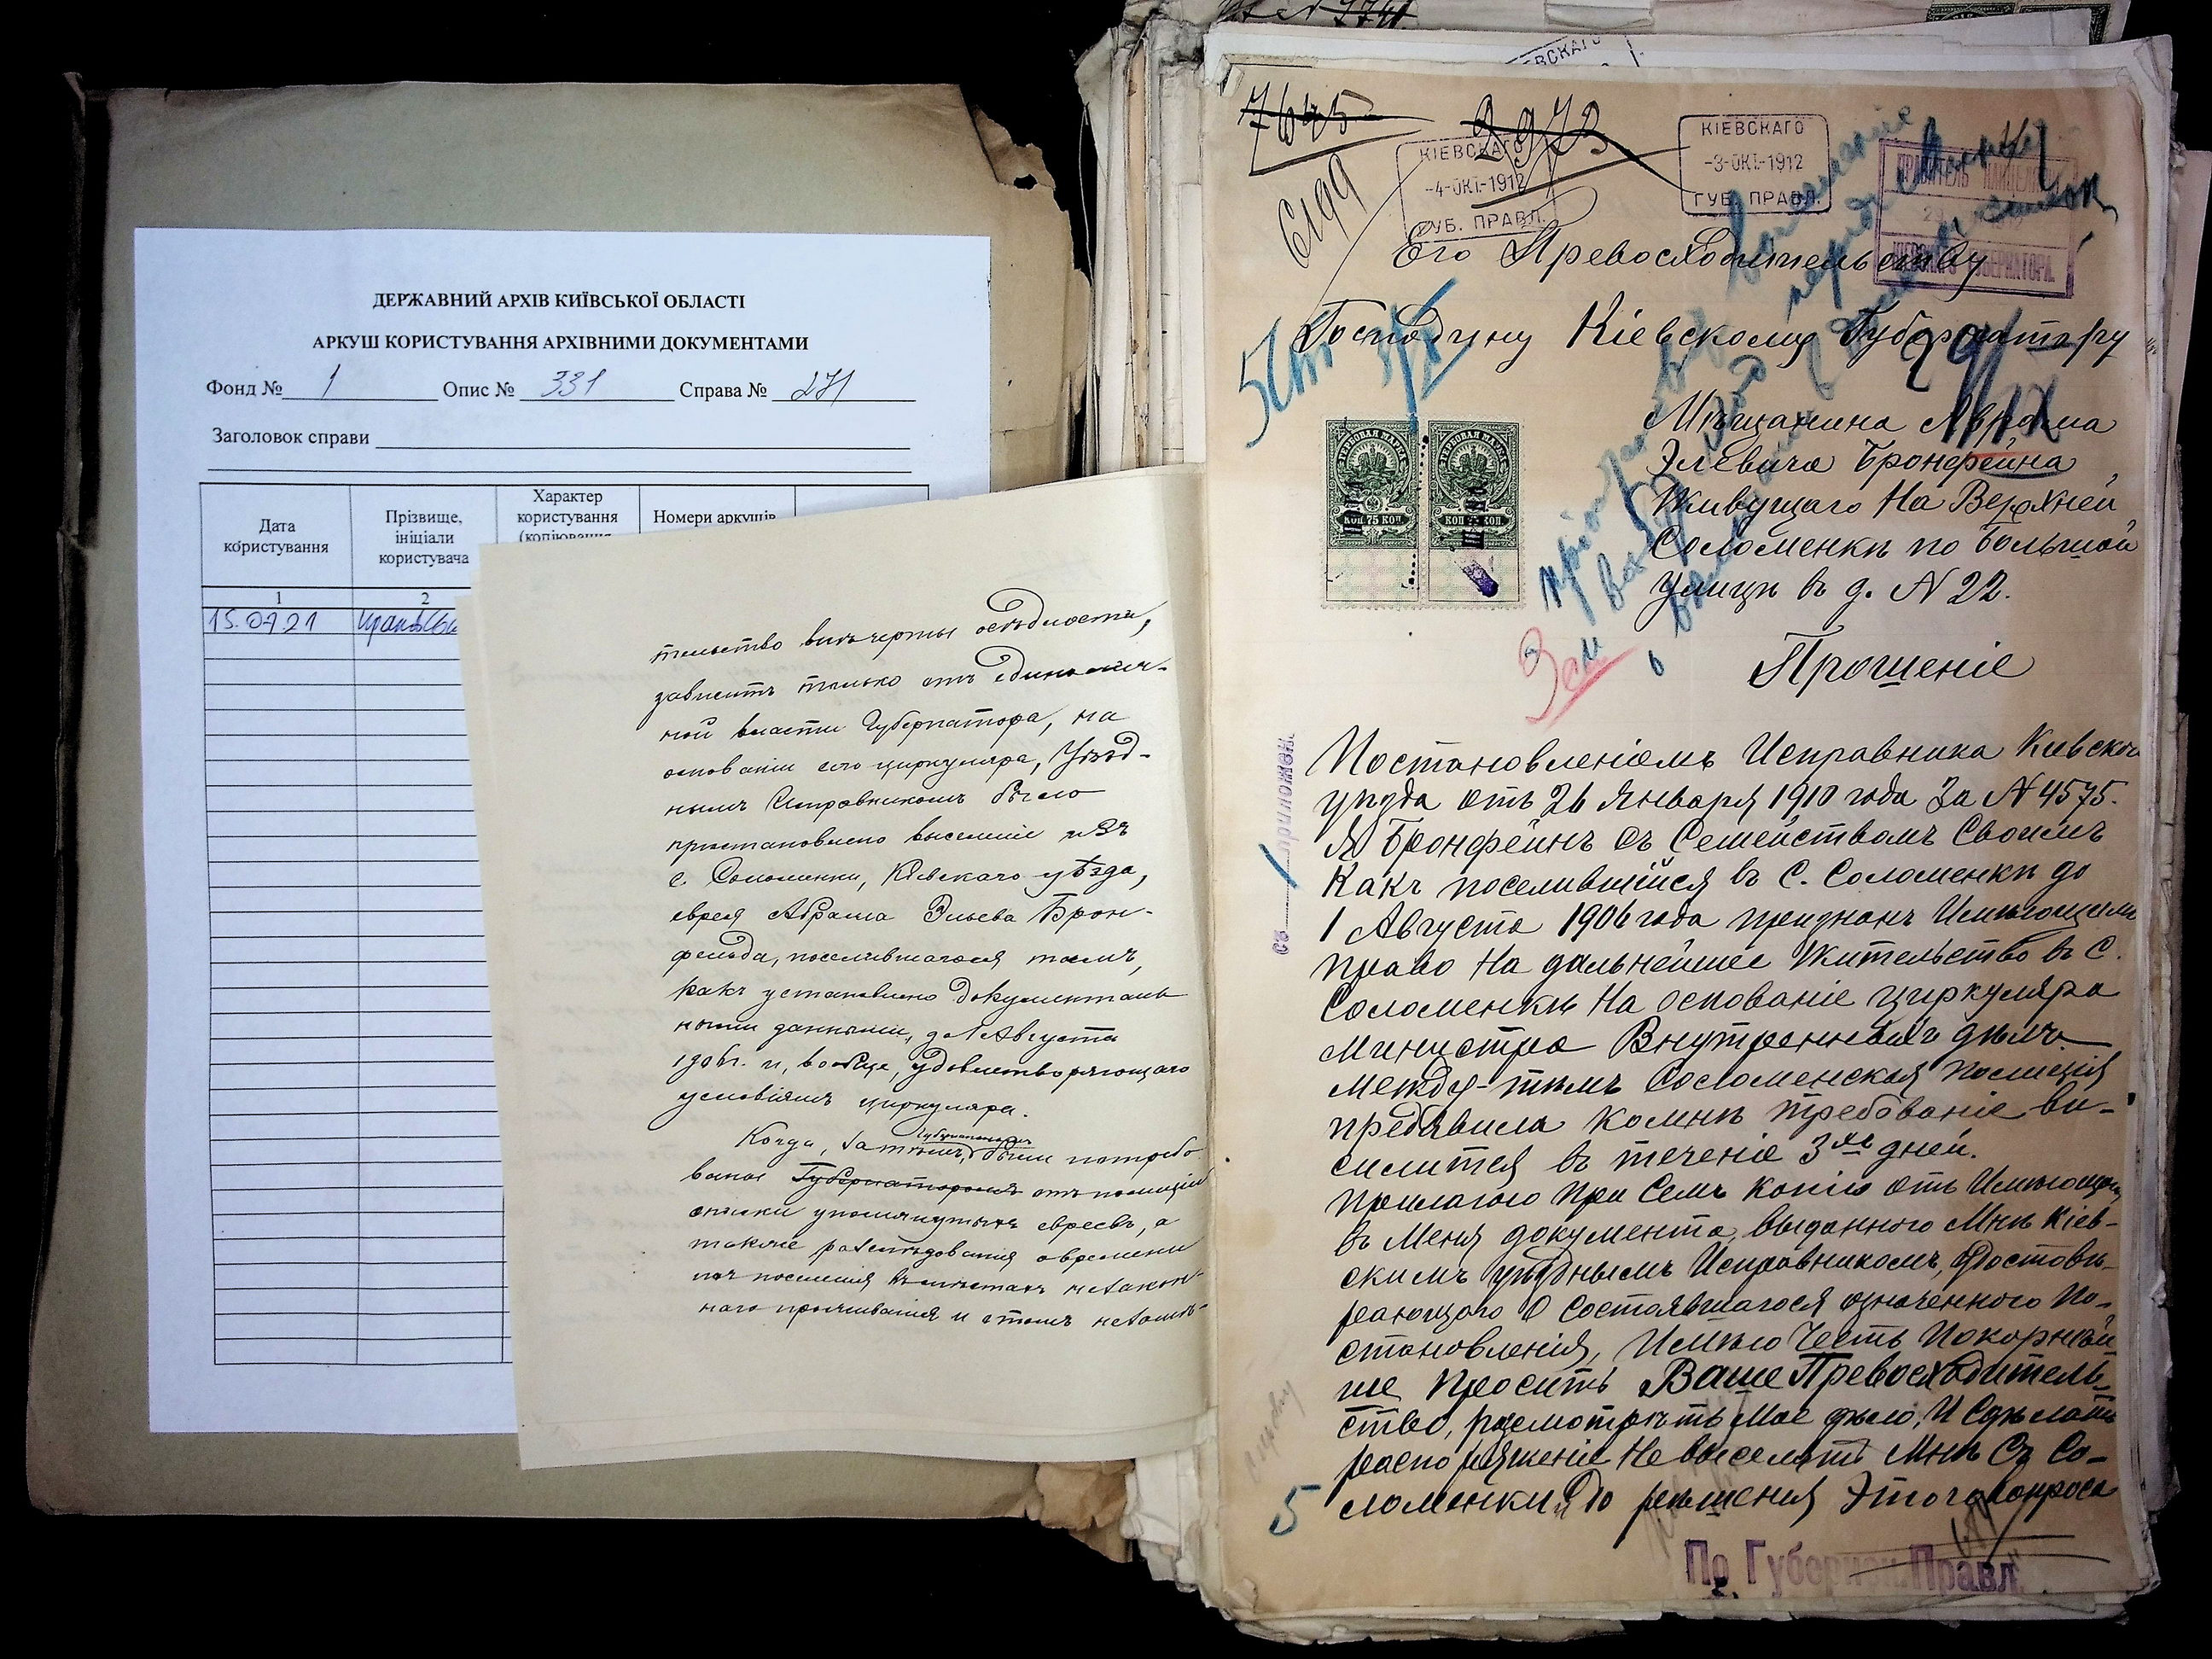 ДЕРЖАВНИЙ АРХІВ КИЇВСЬКОЇ ОБЛАСТІ
АРКУШ КОРИСТУВАННЯ АРХІВНИМИ ДОКУМЕНТАМИ
Фонд № 1 Опис № 331 Справа № 271
Заголовок справи
Дата користування
Прізвище, ініціали користувача
Характер користування (копіювання
Номери аркушів
1
2
15.07.21
тельство внѣ черты осѣдлости,
зависитъ только отъ единолич-
ной власти Губернатора, на
основаніи его циркуляра, Уѣзд-
нымъ Исправникомъ было
пріостановлено выселеніе изъ
с. Соломенки, Кіевскаго уѣзда,
еврея Абрама Эльева Брон-
фельда, поселившагося тамъ,
какъ установлено документаль
ными данными, до 1 Августа
1906 г. и, вообще, удовлетворяющаго
условіямъ циркуляра.
Когда, затѣмъ, Губернаторомъ были потребо
ваны Губернаторомъ отъ полиціи
списки упомянутыхъ евреевъ, а
также разслѣдованія о времени
ихъ поселенія въ мѣстахъ незакон-
наго проживанія и
7645
2973
6199
КІЕВСКАГО
-4-ОКТ-1912
ГУБ. ПРАВЛ.
КІЕВСКАГО
-3-ОКТ-1912
ГУБ. ПРАВЛ.
ПРАВИТЕЛЬ КАНЦЕЛЯРІИ
КІЕВСКАГО ГУБЕРНАТОРА
Его Превосходительству
Господину Кіевскому Губернатору
Мѣщанина Аврама
Элевича Бронфейна
Живущаго На Верхней
Соломенки по Большой
улицѣ въ д. N 22.
ГЕРБОВАЯ МАРКА
КОП 75 КОП
ГЕРБОВАЯ МАРКА
КОП 75 КОП
Прошеніе
Постановленіемъ Исправника Киевского
уѣзда отъ 26 Января 1910 года За N 4575.
Я Бронфейнъ съ Семействомъ Своимъ
Какъ поселившийся въ С. Соломенкѣ до
1 Августа 1906 года признанъ Имѣющимъ
право На дальнейшее Жительство въ С.
Соломенкѣ На основаніе циркуляра
Министра Внутреннихъ дѣлъ
Между-тѣмъ Соломенская Полиція
предявила Комнѣ требованіе ви-
силится въ теченіе 3хъ дней.
Прилагаю При Семъ Копію отъ Имѣющаго
въ Меня документа, выданного Мнѣ Кіев-
скимъ уѣзднымъ Исправникомъ, удостовѣ-
ряющаго О Состоявшагося означенного По-
становленія, Имѣю Честь Покорнѣй
ше Просить Ваше Превосходитель-
ство, расмотрѣть Мое дѣло, И Сдѣлать
распоряженіе Не выселять Мнѣ Съ Со-
ломенки до решения Этого вопроса
съ приложен.
5
По Губернск. Правл.